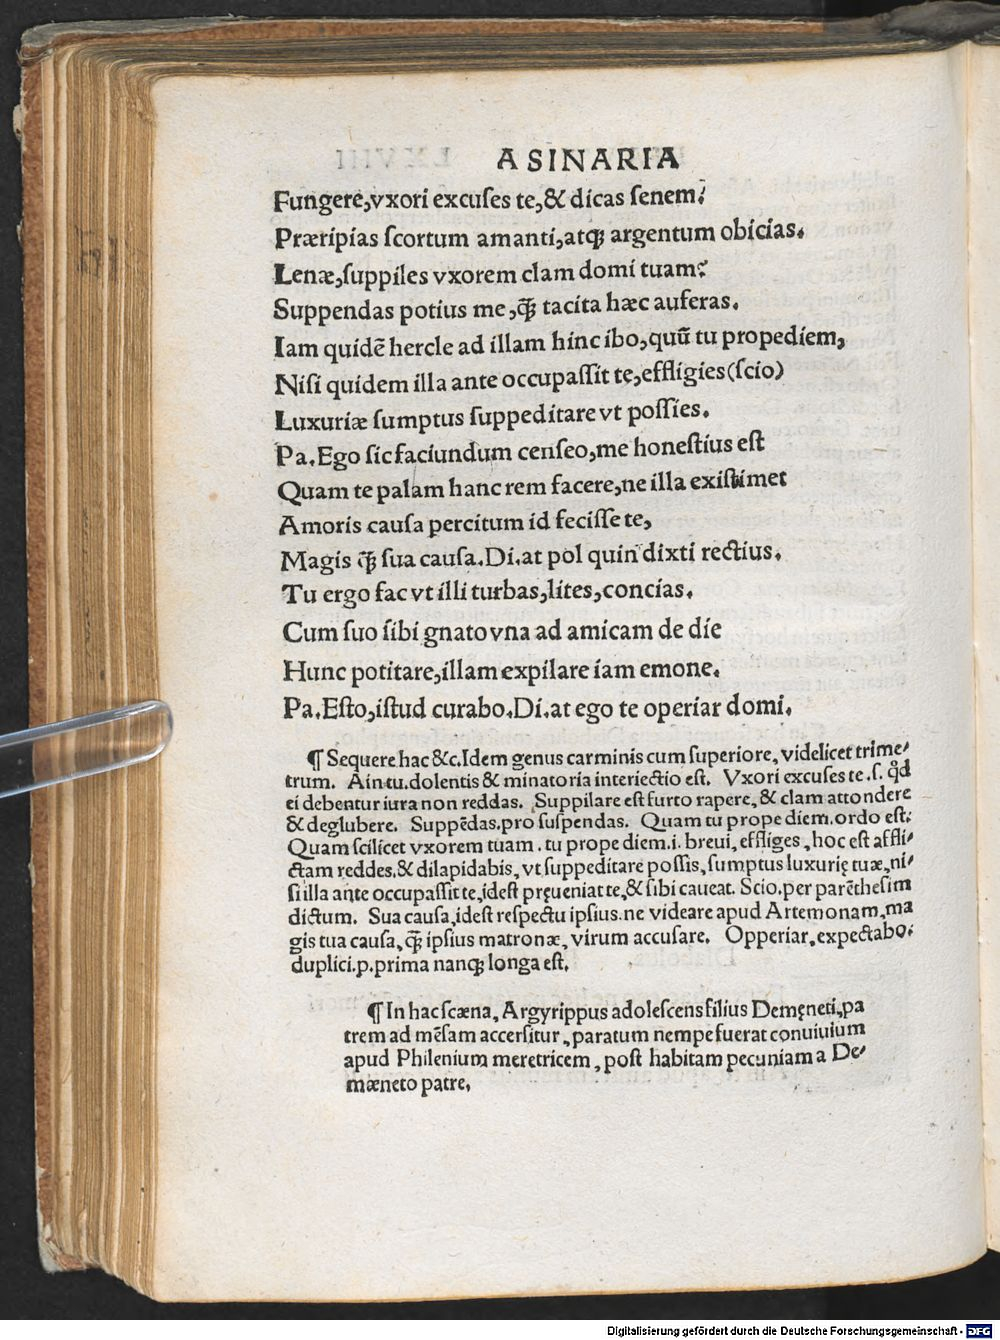 ASINARIA
Fungere, vxori excuses te, & dicas senem?
Præripias scortum amanti, atqꝫ argentum obicias.
Lenæ, suppiles vxorem clam domi tuam?
Suppendas potius me, qꝫ̃ tacita hæc auferas.
Iam quidẽ hercle ad illam hinc ibo, quũ tu propediem,
Nisi quidem illa ante occupassit te, effligies (scio)
Luxuriæ sumptus suppeditare vt possies.
Pa. Ego sic faciundum censeo, me honestius est
Quam te palam hanc rem facere, ne illa existimet
Amoris causa percitum id fecisse te,
Magis qꝫ̃ sua causa. Di. at pol quin dixti rectius.
Tu ergo fac vt illi turbas, lites, concias.
Cum suo sibi gnato vna ad amicam de die
Hunc potitare, illam expilare iam emone.
Pa. Esto, istud curabo. Di. at ego te operiar domi.
¶ Sequere hac &c. Idem genus carminis cum superiore, videlicet trime/
trum. Ain tu. dolentis & minatoria interiectio est. Vxori excuses te .s. qđ
ei debentur iura non reddas. Suppilare est furto rapere, & clam attondere
& deglubere. Suppẽdas. pro suspendas. Quam tu prope diem. ordo est.
Quam scilicet vxorem tuam. tu prope diem .i. breui, effliges, hoc est affli/
ctam reddes, & dilapidabis, vt suppeditare possis, sumptus luxurię tuæ, ni/
si illa ante occupassit te, idest pręueniat te, & sibi caueat. Scio. per parẽthesim
dictum. Sua causa, idest respectu ipsius. ne videare apud Artemonam, ma
gis tua causa, qꝫ̃ ipsius matronæ, virum accusare. Opperiar, expectabo.
duplici .p. prima nanqꝫ longa est.
¶ In hac scæna, Argyrippus adolescens filius Demęneti, pa
trem ad mẽsam accersitur, paratum nempe fuerat conuiuium
apud Philenium meretricem, post habitam pecuniam a De/
mæneto patre.
Digitalisierung gefördert durch die Deutsche Forschungsgemeinschaft - DFG